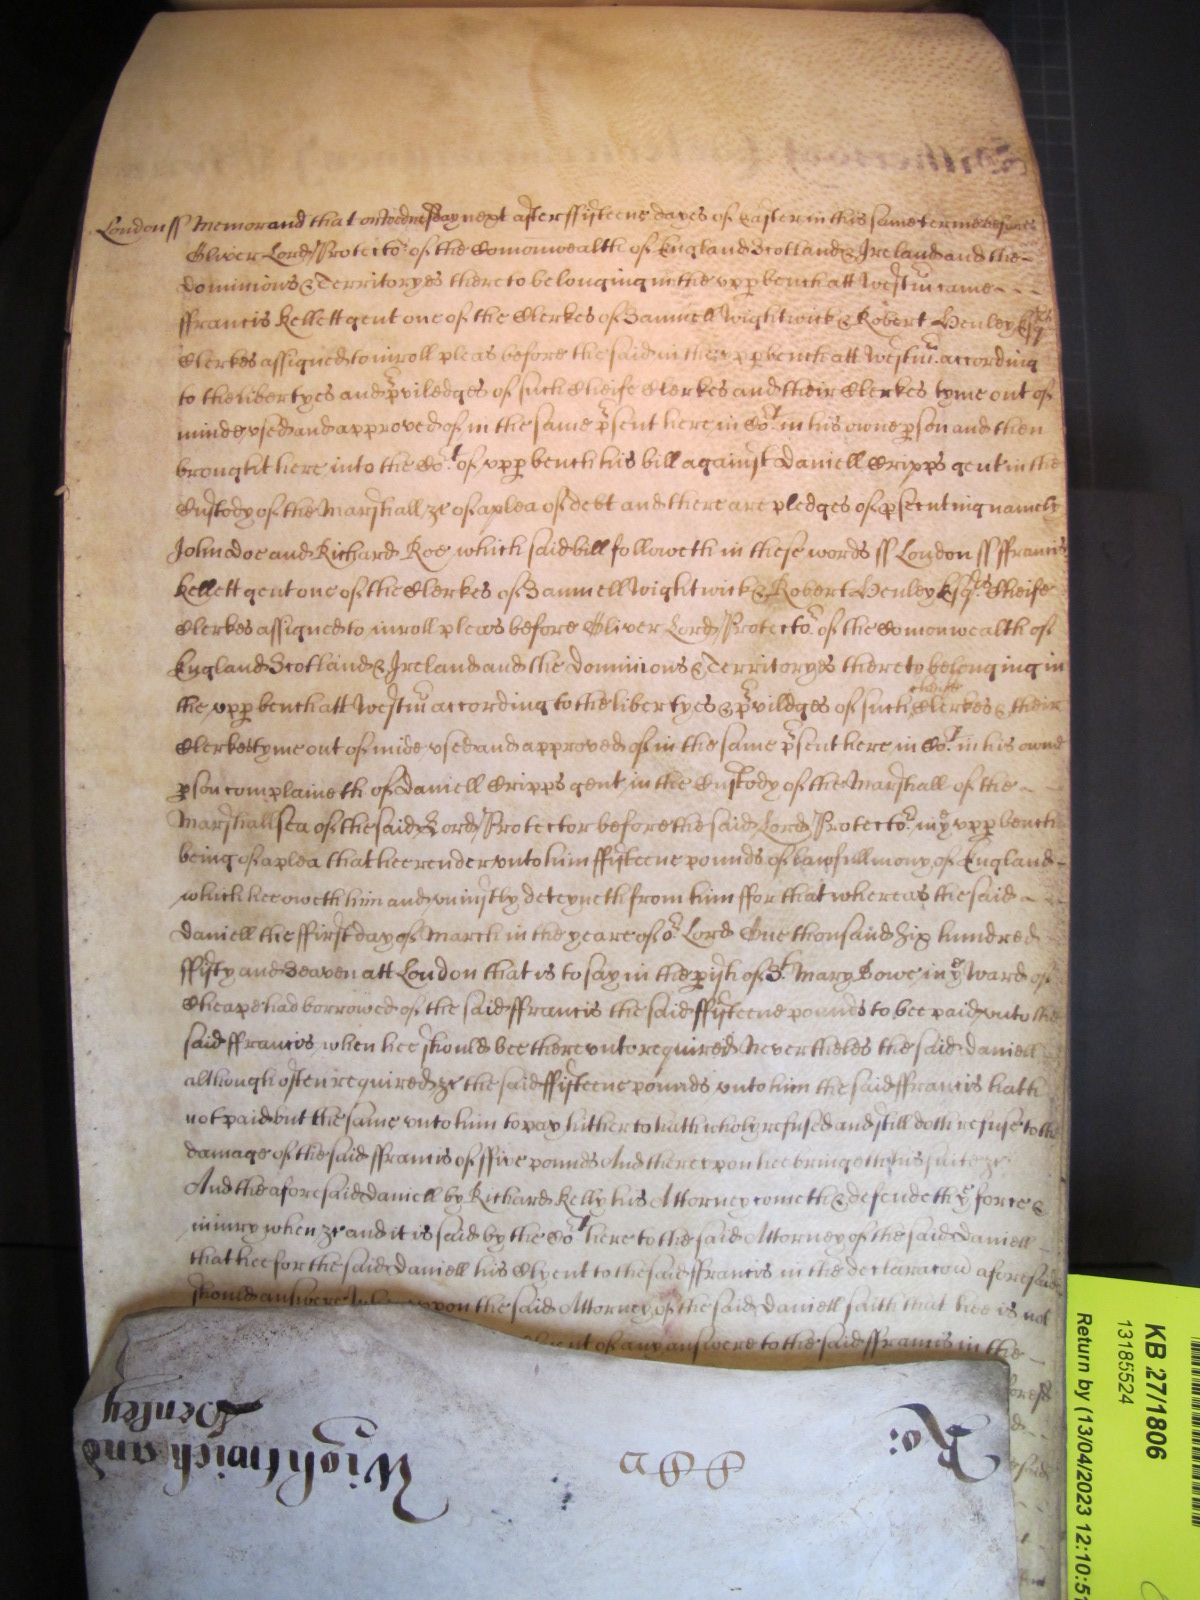 London ss Memorand that on wednesday next after ffifteene dayes of Easter in this same terme before
Oliver Lord Protecto.r of the Comonwealth of England Scotland & Ireland and the
dominions & Territoryes thereto belonging in the upp bench att Westm came
ffrancis Kellett gent one of the Clerkes of Samuell Wightwick & Robert Henley Esqrs
Clerkes assigned to inroll pleas before the said in the upp bench att Westm. according
to the libertyes and pviledges of such Cheife Clerkes and their Clerkes tyme out of
minde used and approved of in the same psent here in Co.t in his owne pson and then
brought here into the Co.t of upp bench his bill against Daniell Cripps gent in the
Custody of the Marshall &c of a plea of debt and there are pledges of psecuting namely
John doe and Richard Roe which said bill followeth in these words ss London ss ffrancis
Kellett gent one of the Clerkes of Samuell Wightwick & Robert Henley Esqrs Cheife
Clerkes assigned to inroll pleas before Oliver Lord Protecto.r of the Comonwealth of
England Scotland & Ireland and the Dominions & Territoryes thereto belonging in
the upp bench att Westm according to the libertyes & pviledges of such cheife Clerkes & their
Clerkes tyme out of minde used and approved of in the same psent here in Co.t in his owne
pson complaineth of Daniell Cripps gent in the Custody of the Marshall of the
Marshallsea of the said Lord Protector before the said Lord Protecto.r in ye upp bench
being of a plea that hee render unto him ffifteene pounds of lawfull mony of England
which hee oweth him and uniustly deteyneth from him ffor that whereas the said
Daniell the ffirst day of March in the yeare of o.r Lord One thousand Six hundred
ffifty and Seaven att London that is to say in the pish of St. Mary Bowe in ye Ward of
Cheape had borrowed of the said ffrancis the said ffifteene pounds to bee paid unto the
said ffrancis when hee should bee thereunto required Neverthelesse the said Daniell
although often required &c the said ffifteene pounds unto him the said ffrancis hath
not paid but the same unto him to pay hitherto hath wholy refused and still doth refuse to the
damage of the said ffrancis of ffive pounds And thereupon hee bringeth his suite &c
And the aforesaid Daniell by Richard Kelly his Attorney cometh & defendeth ye force &
iniury when &c and it is said by the Co.t here to the said Attorney of the said Daniell
that hee for the said Daniell his Clyent to the said ffrancis in the declaracon aforesaid
should answere Whereupon the said Attorney of the said Daniell saith that hee is not
of any answere to the said ffrancis in the
Ro:
Wightwich and
Henley
KB 27/1806
13185524
Return by (13/04/2023 12:10:51